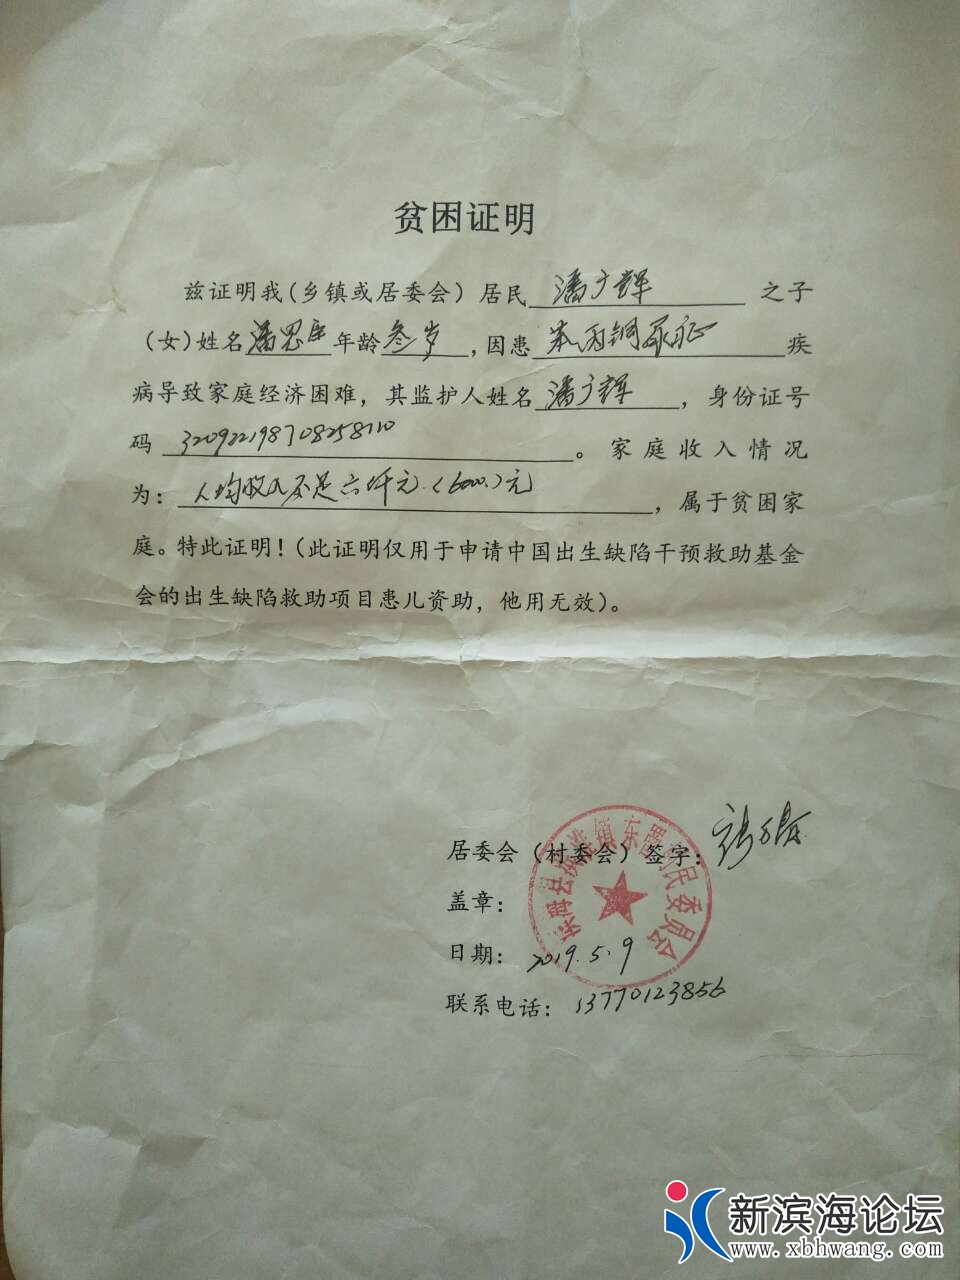 贫困证明
兹证明我(乡镇或居委会)居民潘广辉之子
(女)姓名潘思年龄叁岁,因患苯丙铜尿症疾
病导致家庭经济困难,其监护人姓名潘广辉,身份证号
码320922198708258110。家庭收入情况
为:人均收入不足六仟元(6000)元,属于贫困家
庭。特此证明!(此证明仅用于申请中国出生缺陷干预救助基金
会的出生缺陷救助项目患儿资助,他用无效)。
居委会(村委会)签字:
盖章:
日期:2019.5.9
联系电话:13770123856
镇东罾村民委员会
新滨海论坛
www.xbhwang.com